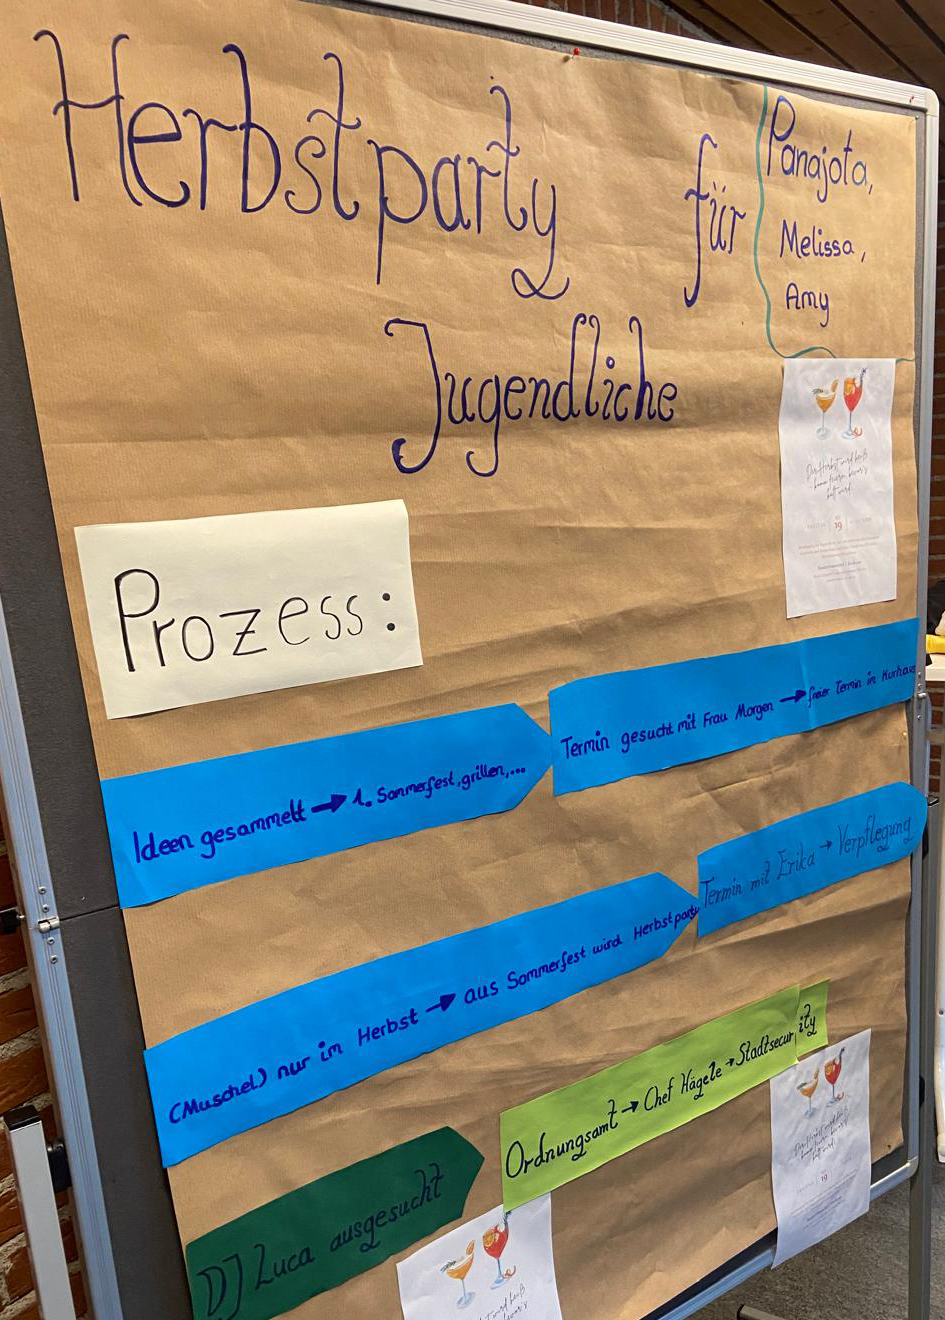 Herbstparty für
Jugendliche
Panajota,
Melissa,
Amy
Der Herbst wird heiß
kalt wird.
19
Prozess:
Ideen gesammelt → 1. Sommerfest, grillen,...
Termin gesucht mit Frau Morgen → freier Termin im Kurhaus
(Muschel) nur im Herbst → aus Sommerfest wird Herbstparty
Termin mit Erika → Verpflegung
DJ Luca ausgesucht
Ordnungsamt → Chef Hägele → Stadtsecurity
19